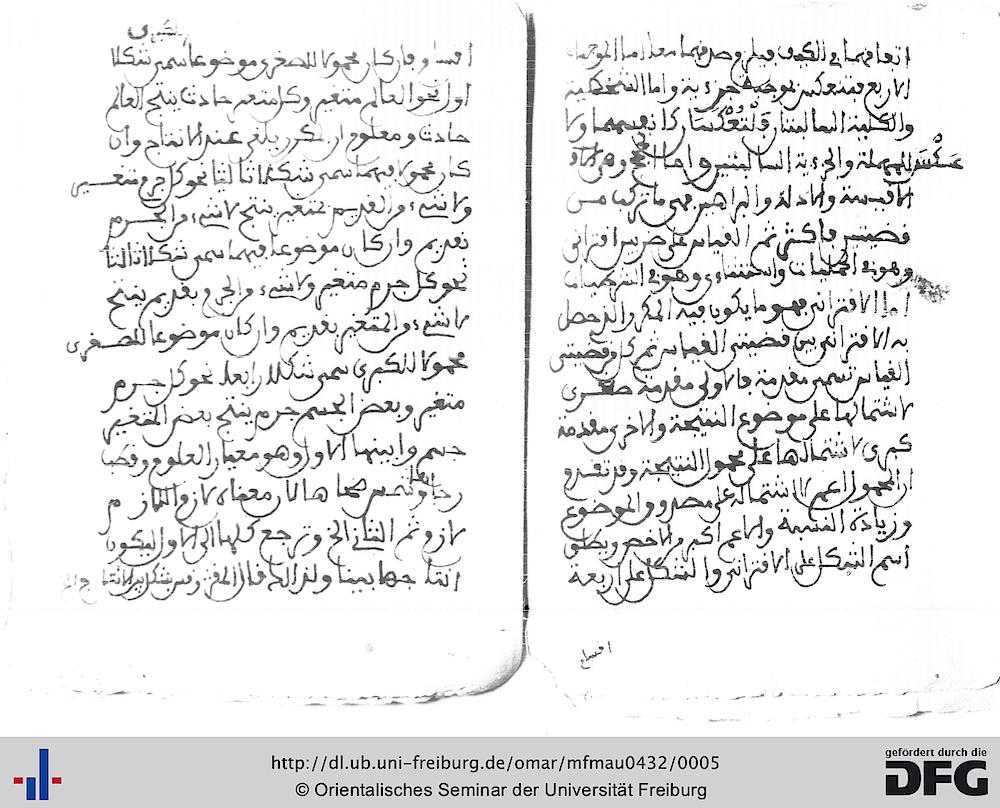 اتفاقهما في الكيف فيلزم صدقهما معا واما الموجبات
الاربع فتنعكس موجبة جزءية واما الشخصية
والكلية السالبتان فلتُعْكَسَا كانفسهما ولا
عَكْسَ للمهملة والجزءية السالبتين واما
الاقيسة والادلة والبراهين فهي ما تركب من
قضيتين فاكثر ثم القياس على ضربين اقتراني
وهو في الحمليات واستثناءي وهو في الشرطيات
اما الاقتراني فهو ما يكون فيه المكرر والذي حصل
به الاقتراني بين قضيتي القياس ثم كل قضيتي
القياس تسمى مقدمة فالاولى مقدمة صغرى
لاشتمالها على موضوع النتيجة والاخرى مقدمة
كبرى لاشتمالها على محمول النتيجة وقد تقدم
ان المحمول اعم لاشتماله على مصدوق الموضوع
وزيادة النسبة والاعم اكبر والاخص ويطلق
اسم الشكل على الاقتراني والشكل على اربعة
اقسام
للكبرى
اقسام فان كان محمولا للصغرى وموضوعا سمى شكلا
اول نحو العالم متغير وكل متغير حادث ينتج العالم
حادث ومعلوم ان المكرر يلغى عند الانتاج وان
كان محمولا فيهما سمى شكلا ثانيا نحو كل جرم متغير
ولا شيء من القديم بمتغير ينتج لا شيء من الجرم
بقديم وان كان موضوعا فيهما سمى شكلا ثالثا
نحو كل جرم متغير ولا شيء من الجرم بقديم ينتج
لا شيء من المتغير بقديم وان كان موضوعا للصغرى
محمولا للكبرى سمى شكلا رابعا نحو كل جرم
متغير وبعض الجسم جرم ينتج بعض المتغير
جسم وابينها الاول وهو معيار العلوم
لازم ثم الثاني الخ وترجع كلها الى الاول ليكون
انتاجها بينا ولذلك قال
http://dl.ub.uni-freiburg.de/omar/mfmau0432/0005
© Orientalisches Seminar der Universität Freiburg
gefördert durch die
DFG